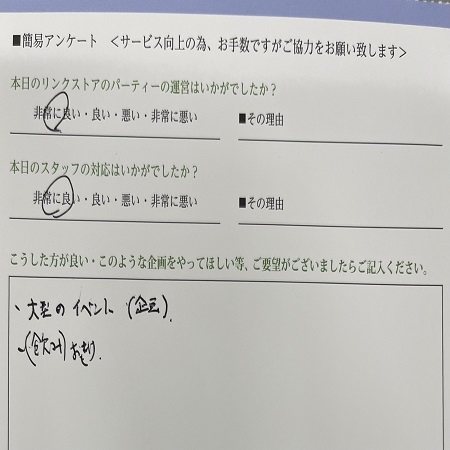 ■簡易アンケート <サービス向上の為、お手数ですがご協力をお願い致します>
本日のリンクストアのパーティーの運営はいかがでしたか?
非常に良い・良い・悪い・非常に悪い ■その理由
本日のスタッフの対応はいかがでしたか?
非常に良い・良い・悪い・非常に悪い ■その理由
こうした方が良い・このような企画をやってほしい等、ご要望がございましたらご記入ください。
、大型のイベント (企画).